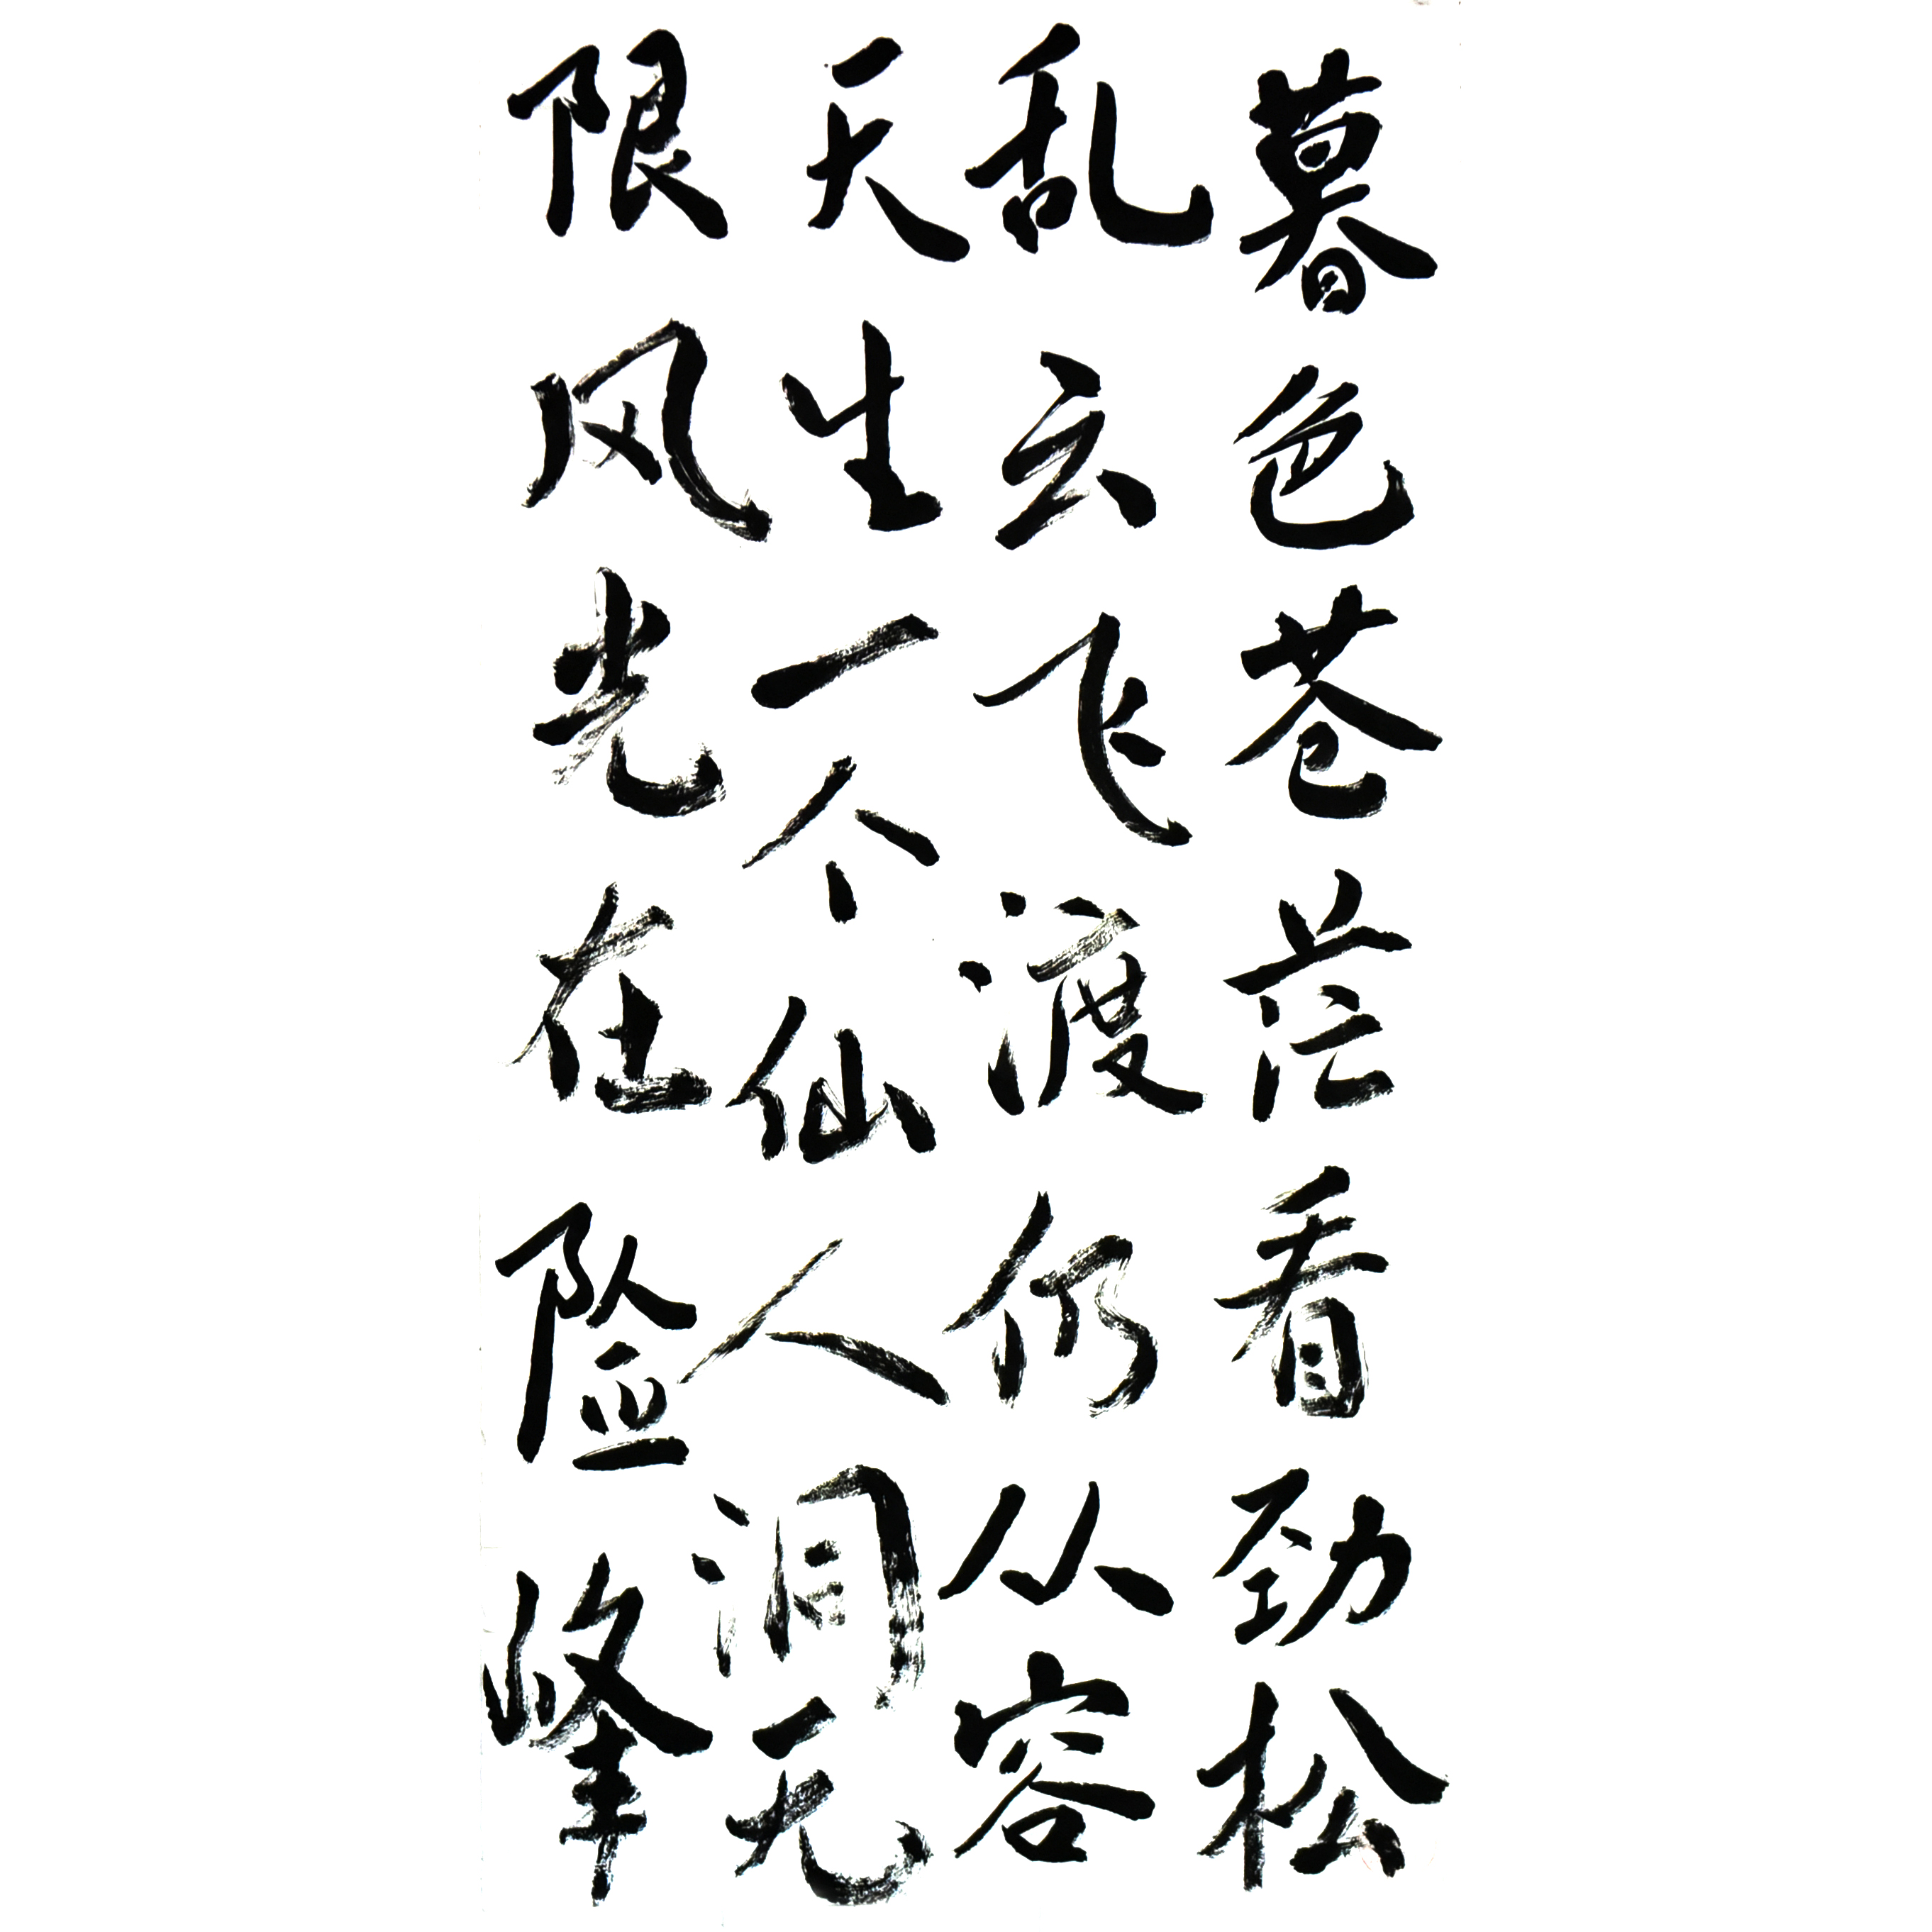 暮色苍茫看劲松
乱云飞渡仍从容
天生一个仙人洞无
限风光在险峰